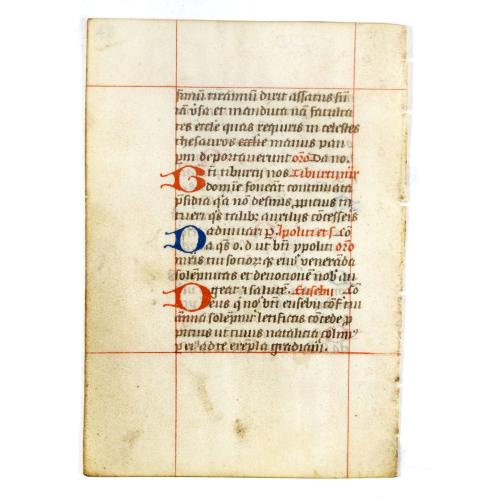 simū tirannū dixit assatus sū
iā v̄sa et manduca nā faculta
tes eccl̄e quas requiris in celestes
thesauros eccl̄ie manus pau
pm deportaverunt orō Da no.
Bt̄i tiburtii nos Tiburtii mr̄
domīe foveāt continuata
p̄sidia qa nō desinis p̄pitius in
tueri qs talib; auxiliis cōcesseis
adiuvari p̄ Ipoliti et s̄ cō
Da qs o. d ut bn̄ ypoliti orō
mris tui socior eius venerāda
solēpnitas et devotionē nob au
geat i salutē. Eusebii Cō
Deus q nos bt̄i eusebii cōf tui
ānua solēpni letificas cōcede p̄
pitius ut cuius natalicia colim
p ei ad te exēpla gradiam.